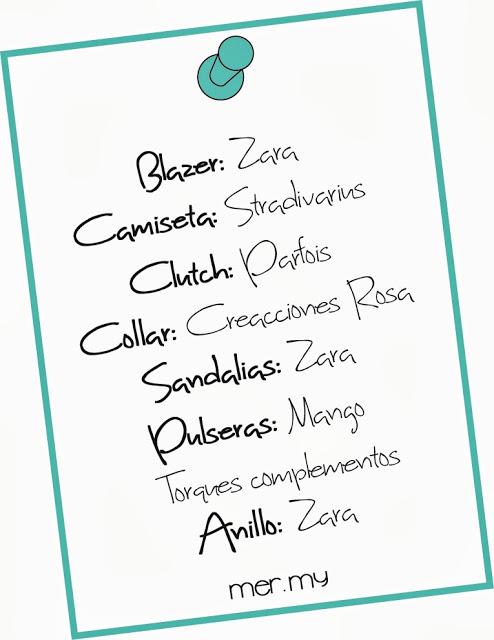 Blazer: Zara
Camiseta: Stradivarius
Clutch: Parfois
Collar: Creacciones Rosa
Sandalias: Zara
Pulseras: Mango
Torques complementos
Anillo: Zara
mer.my